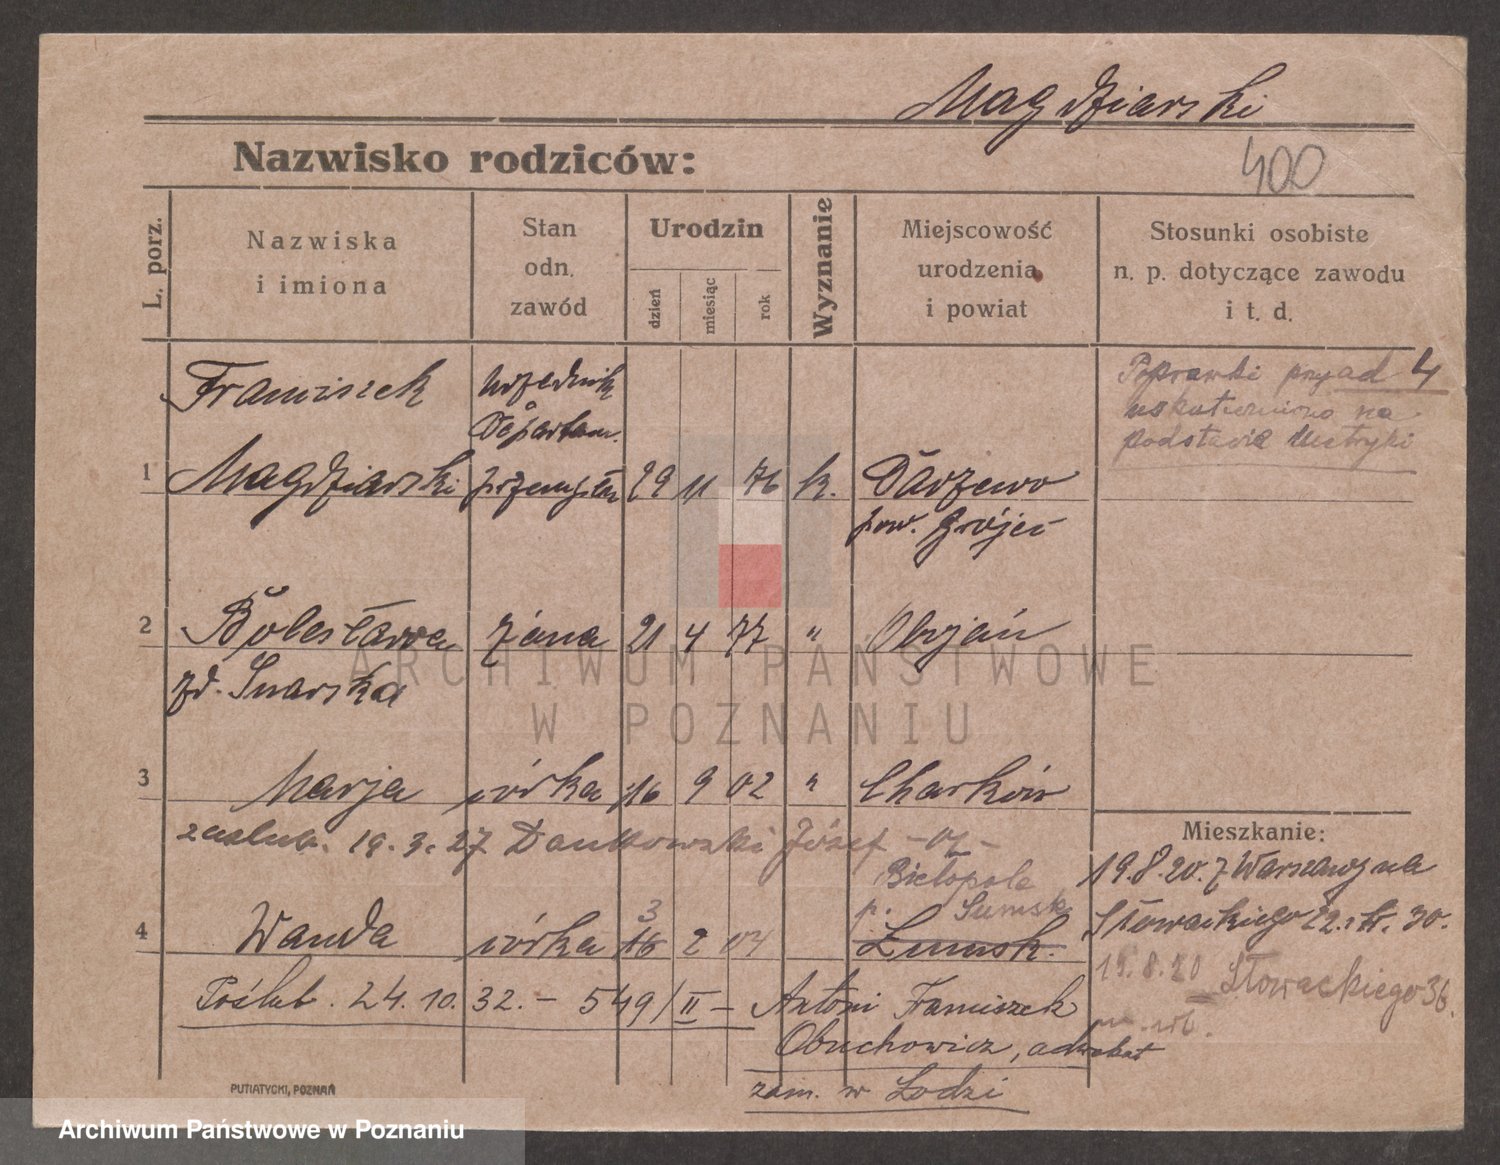 Magdziarski
Nazwisko rodziców:
400
L. porz.
Nazwiska
i imiona
Stan
odn.
zawód
Urodzin
dzień
miesiąc
rok
Wyznanie
Miejscowość
urodzenia
i powiat
Stosunki osobiste
n. p. dotyczące zawodu
i t. d.
Poprawki przy ad 4
uskuteczniono na
podstawie metryki
Franciszek urzędnik
Departam.
1 Magdziarski przemysłu 29 11 76 k. Darzewo
pow. Grójec
2 Bolesława żona 21 4 77 " Obojań
zd. Snarska
3 Marja córka 16 9 02 " Charków
zaślub. 19. 3. 27 Dankowski Józef
Bielopole
p. Sumsk
4 Wanda córka 3 16 2 04 Sumsk.
Poślub. 24. 10. 32. - 549/II - Antoni Franciszek
Obuchowicz, adwokat
zam. w Łodzi
Mieszkanie:
19.8.20. z Warszawy na
Słowackiego 22. 30.
19.8.20 Słowackiego 36
PUTIATYCKI, POZNAŃ
ARCHIWUM PAŃSTWOWE
W POZNANIU
Archiwum Państwowe w Poznaniu